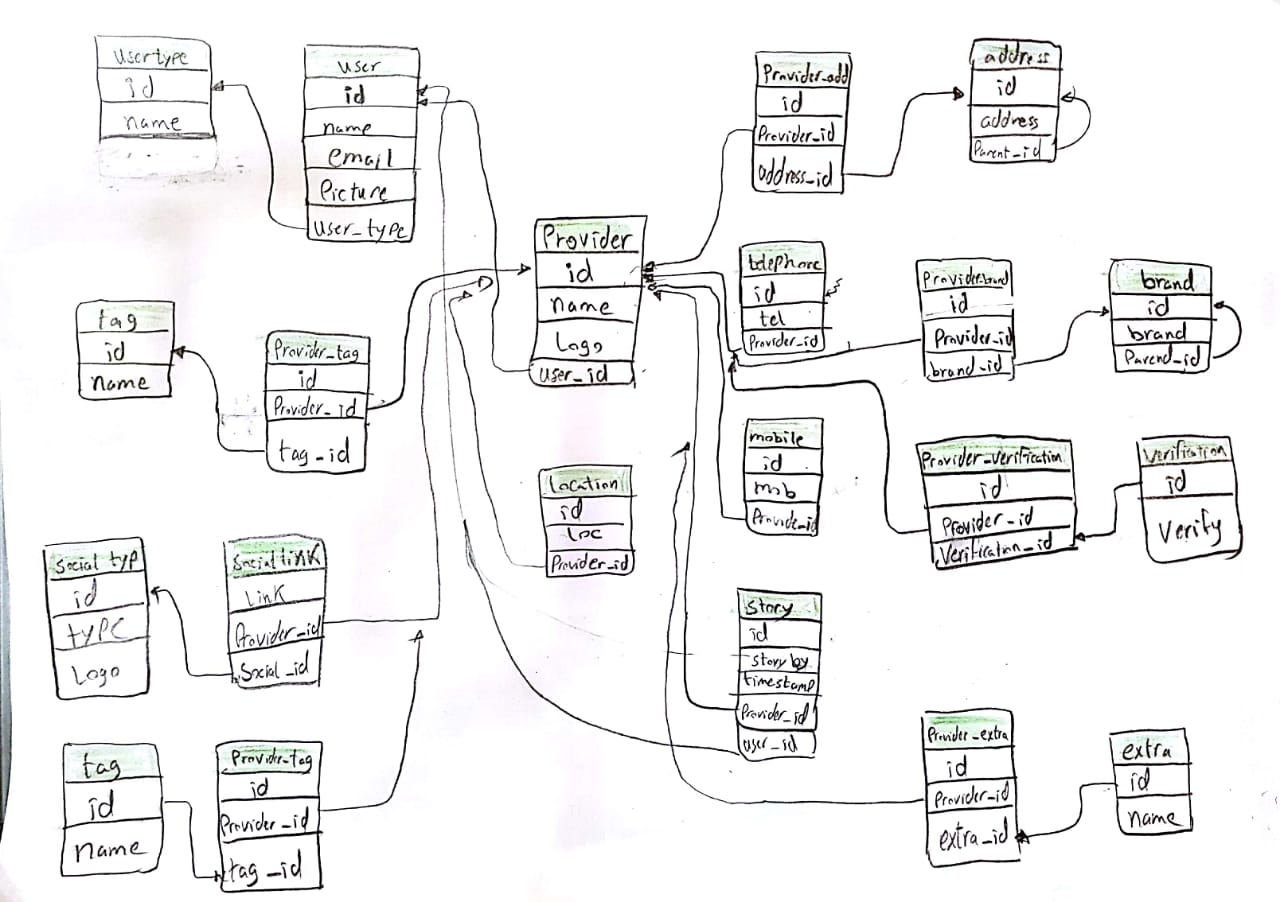 Usertype
id
name
user
id
name
email
Picture
user_type
Provider_add
id
Provider_id
address_id
address
id
address
Parent_id
Provider
id
name
Logo
user_id
telephone
id
tel
Provider_id
Provider_brand
id
Provider_id
brand_id
brand
id
brand
Parend_id
tag
id
name
Provider_tag
id
Provider_id
tag_id
mobile
id
mob
Provide_id
Provider_Verification
id
Provider_id
Verification_id
Verification
id
Verify
Location
id
Loc
Provider_id
Social typ
id
type
Logo
Social link
Link
Provider_id
Social_id
story
id
story by
timestamp
Provider_id
user_id
tag
id
name
Provider_tag
id
Provider_id
tag_id
Provider_extra
id
Provider_id
extra_id
extra
id
name